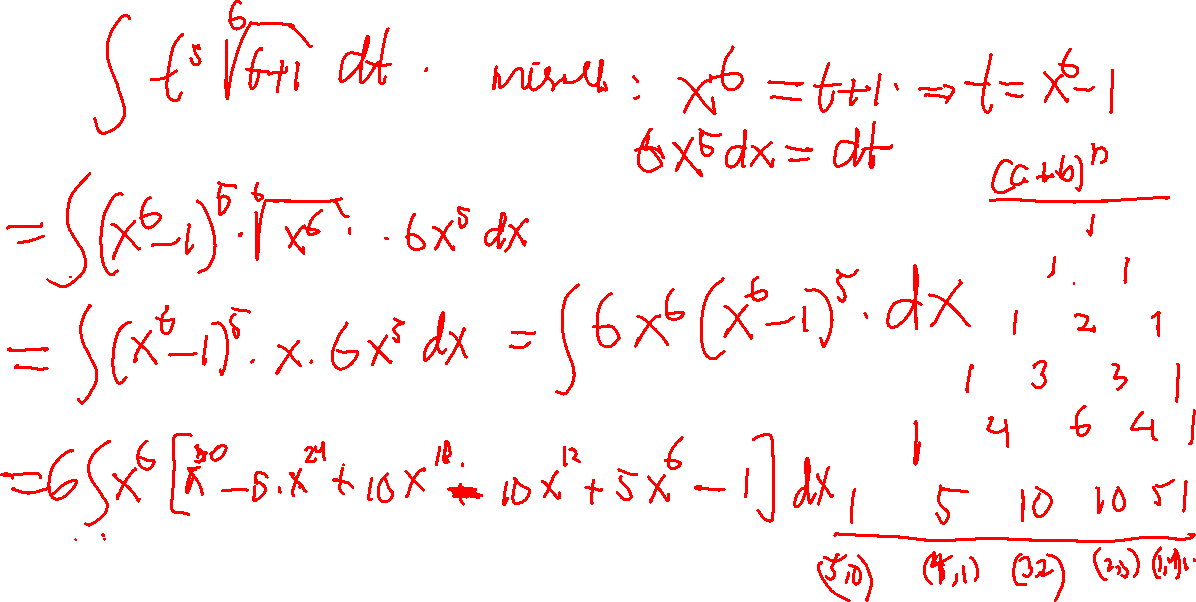 ∫ t⁵ ⁶√(t+1) dt . misal : x⁶ = t+1 ⇒ t = x⁶-1
6x⁵ dx = dt
= ∫ (x⁶-1)⁵ · ⁶√(x⁶) · 6x⁵ dx
= ∫ (x⁶-1)⁵ · x · 6x⁵ dx = ∫ 6x⁶ (x⁶-1)⁵ · dx
= 6 ∫ x⁶ [x³⁰ - 5·x²⁴ + 10x¹⁸ - 10x¹² + 5x⁶ - 1] dx
(a+b)ⁿ
1
1 1
1 2 1
1 3 3 1
1 4 6 4 1
1 5 10 10 5 1
(5,0) (4,1) (3 2) (2,3)